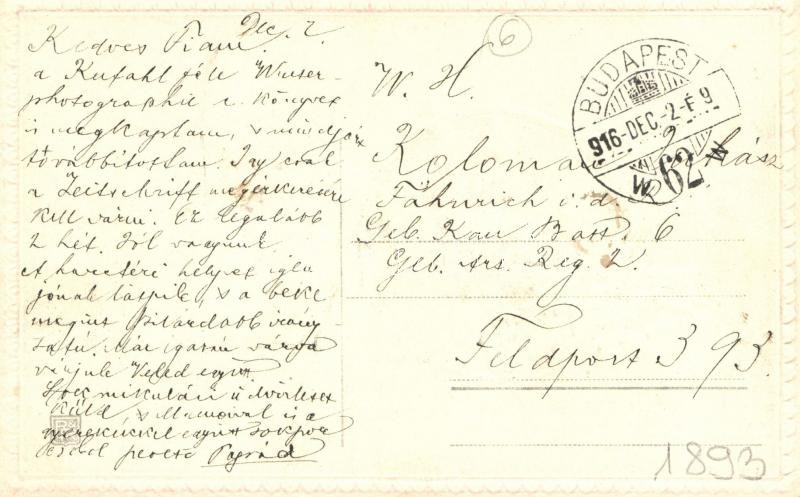 Dec. 2.
Kedves Fiam.
a Kufahl féle Winter-
photographie c. könyvet
is megkaptam, s mindjárt
továbbítottam. Így csak
a Zeitschrift megérkezésére
kell várni. Ez legalább
2 hét. Jól vagyunk.
A harctéri helyzet igen
jónak látszik, s a béke
megint
várjuk Veled együtt
üdvözletet
küld, s Mamával is a
gyerekekkel együtt sokszor
csókol szerető
6
W. H.
Koloman
Fähnrich i. d.
Geb. Kan Batt. 6
Geb. Art. Reg 2.
Feldpost 393.
BUDAPEST
916-DEC.-2-É 9
62
1893